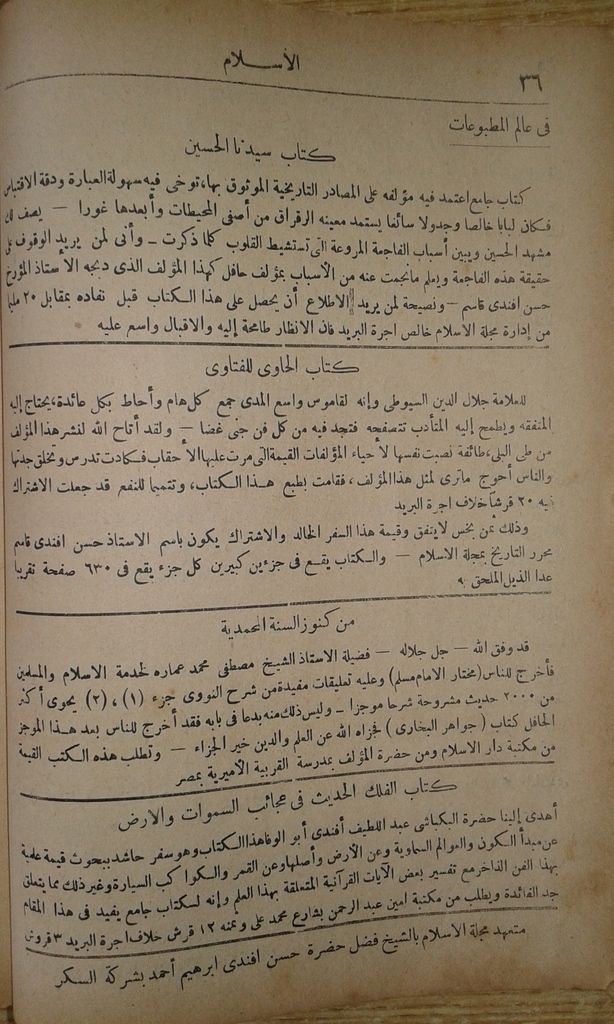 الأسلام
٣٦
فى عالم المطبوعات
كتاب سيدنا الحسين
كتاب جامع اعتمد فيه مؤلفه على المصادر التاريخية الموثوق بها، توخى فيه سهولة العبارة ودقة الاقتباس
فكان لبابا خالصا وجدولا سائغا يستمد معينه الرقراق من أصفى المحيطات وأبعدها غورا — يصف لك
مشهد الحسين ويبين أسباب الفاجعة المروعة التى تستشيط القلوب كلما ذكرت — وأنى لمن يريد الوقوف على
حقيقة هذه الفاجعة ويعلم مانجمت عنه من الأسباب بمؤلف حافل كهذا المؤلف الذى دبجه الأستاذ المؤرخ
حسن افندى قاسم — ونصيحة لمن يريد الاطلاع أن يحصل على هذا الكتاب قبل نفاده بمقابل ٢٠ مليما
من إدارة مجلة الاسلام خالص اجرة البريد فان الانظار طامحة إليه والاقبال واسع عليه
كتاب الحاوى للفتاوى
للعلامة جلال الدين السيوطى وإنه لقاموس واسع المدى جمع كل هام وأحاط بكل عائدة، يحتاج إليه
المتفقه ويطمح إليه المتأدب تتصفحه فتجد فيه من كل فن جنى غضا — ولقد أتاح الله لنشر هذا المؤلف
من طى البلى، طائفة نصبت نفسها لأحياء المؤلفات القيمة التى مرت عليها الأحقاب فكادت تدرس وتخلق جدتها
والناس أحوج ماترى لمثل هذا المؤلف، فقامت بطبع هذا الكتاب، وتتميما للنفع قد جعلت الاشتراك
فيه ٢٠ قرشا خلاف اجرة البريد
وذلك ثمن بخس لايتفق وقيمة هذا السفر الخالد والاشتراك يكون باسم الاستاذ حسن افندى قاسم
محرر التاريخ بمجلة الاسلام — والكتاب يقع فى جزءين كبيرين كل جزء يقع فى ٦٣٠ صفحة تقريبا
عدا الذيل الملحق به
من كنوز السنة المحمدية
قد وفق الله — جل جلاله — فضيلة الاستاذ الشيخ مصطفى محمد عماره لخدمة الاسلام والمسلمين
فأخرج للناس (مختار الامام مسلم) وعليه تعليقات مفيدة من شرح النووى جزء (١)، (٢) يحوى أكثر
من ٢٠٠٠ حديث مشروحة شرحا موجزا — وليس ذلك منه بدعا فى بابه فقد أخرج للناس بعد هذا الموجز
الحافل كتاب (جواهر البخارى) فجزاه الله عن العلم والدين خير الجزاء — وتطلب هذه الكتب القيمة
من مكتبة دار الاسلام ومن حضرة المؤلف بمدرسة القربية الأميرية بمصر
كتاب الفلك الحديث فى عجائب السموات والارض
أهدى إلينا حضرة البكباشى عبد اللطيف أفندى أبو الوفا هذا الكتاب وهو سفر حاشد ببحوث قيمة علمية
عن مبدأ الكون والعوالم السماوية وعن الأرض وأصلها وعن القمر والكواكب السيارة وغير ذلك مما يتعلق
بهذا الفن الذاخر مع تفسير بعض الآيات القرآنية المتعلقة بهذا العلم وإنه لكتاب جامع يفيد فى هذا المقام
جد الفائدة ويطلب من مكتبة امين عبد الرحمن بشارع محمد على وثمنه ١٢ قرش خلاف اجرة البريد ٣ قروش
متعهد مجلة الاسلام بالشيخ فضل حضرة حسن افندى ابرهيم أحمد بشركة السكر